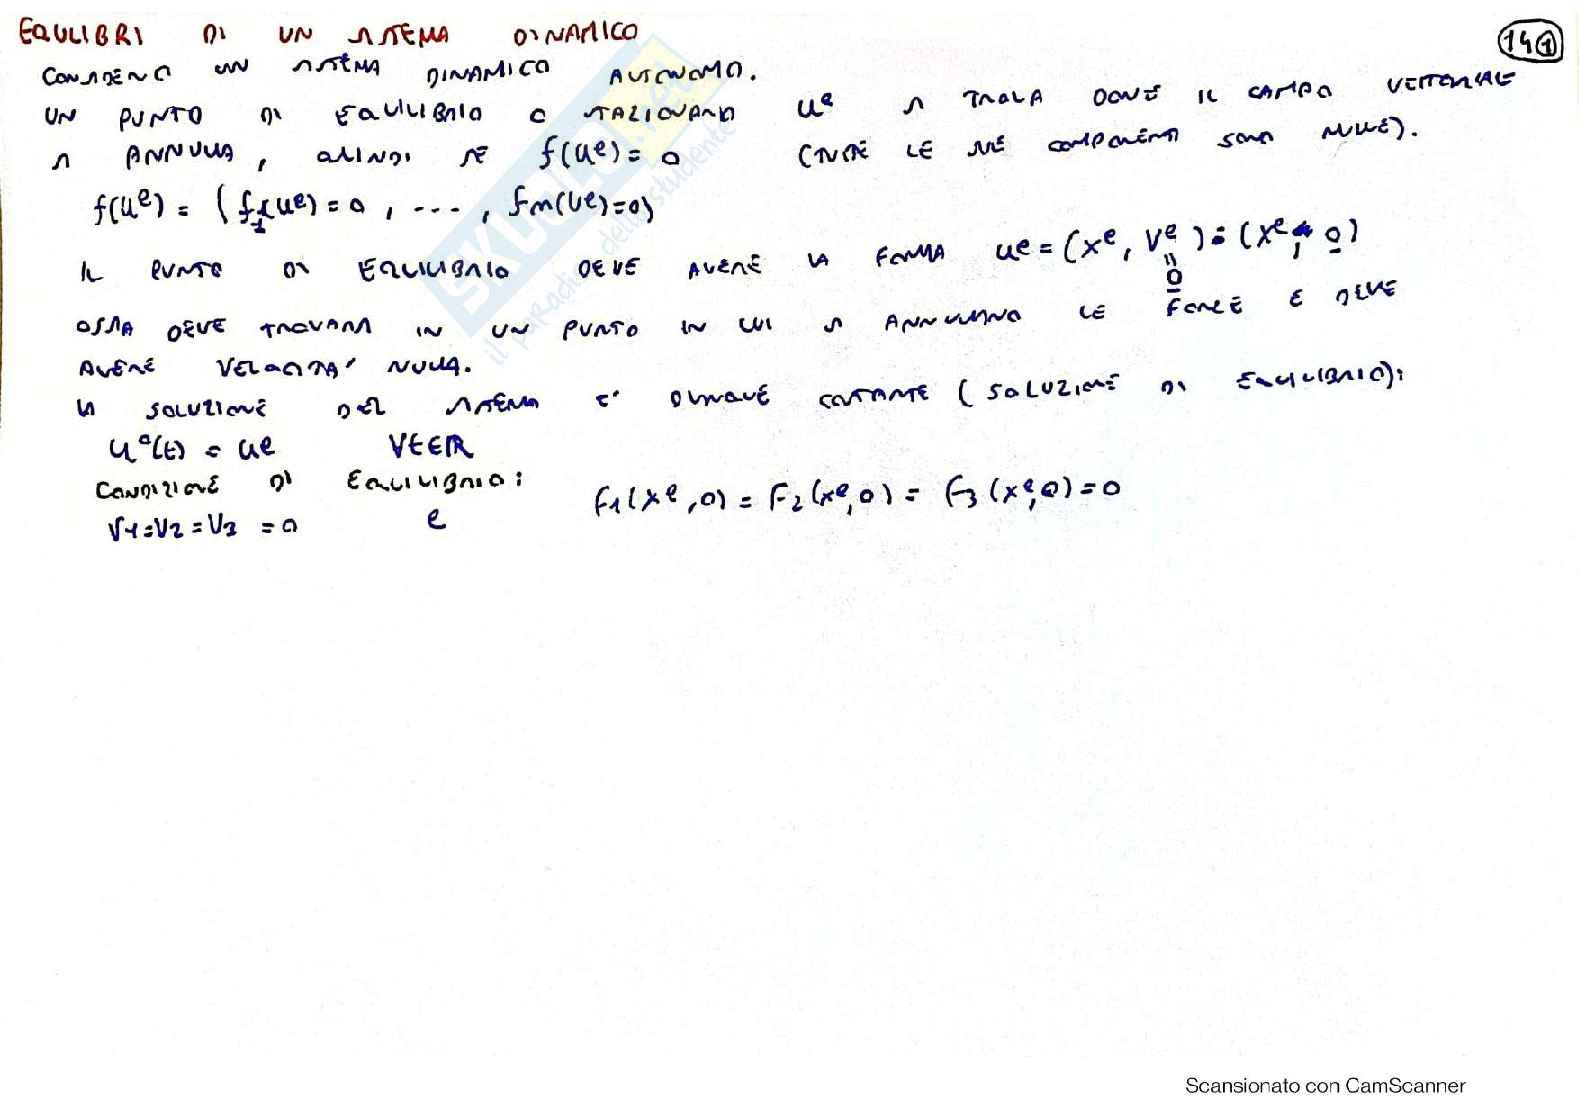 EQULIBRI DI UN SISTEMA DINAMICO
14 1
CONSIDERO UN SISTEMA DINAMICO AUTONOMO.
UN PUNTO DI EQUILIBRIO O STAZIONARIO uᵉ SI TROVA DOVE IL CAMPO VETTORIALE
SI ANNULLA, QUINDI SE f(uᵉ) = 0 (TUTTE LE SUE COMPONENTI SONO NULLE).
f(uᵉ) = (f₁(uᵉ) = 0, ..., fm(uᵉ)=0)
IL PUNTO DI EQUILIBRIO DEVE AVERE LA FORMA uᵉ = (xᵉ, vᵉ) = (xᵉ, 0)
"
0
OSSIA DEVE TROVARSI IN UN PUNTO IN CUI SI ANNULLANO LE FORZE E DEVE
AVERE VELOCITA' NULLA.
LA SOLUZIONE DEL SISTEMA E' DUNQUE COSTANTE (SOLUZIONE DI EQUILIBRIO):
u°(t) = uᵉ ∀t∈ℝ
CONDIZIONE DI EQUILIBRIO:
V1=V2=V3=0 e F1(xᵉ,0) = F2(xᵉ,0) = F3(xᵉ,0)=0
SKUOLA.net
il paradiso dello studente
Scansionato con CamScanner